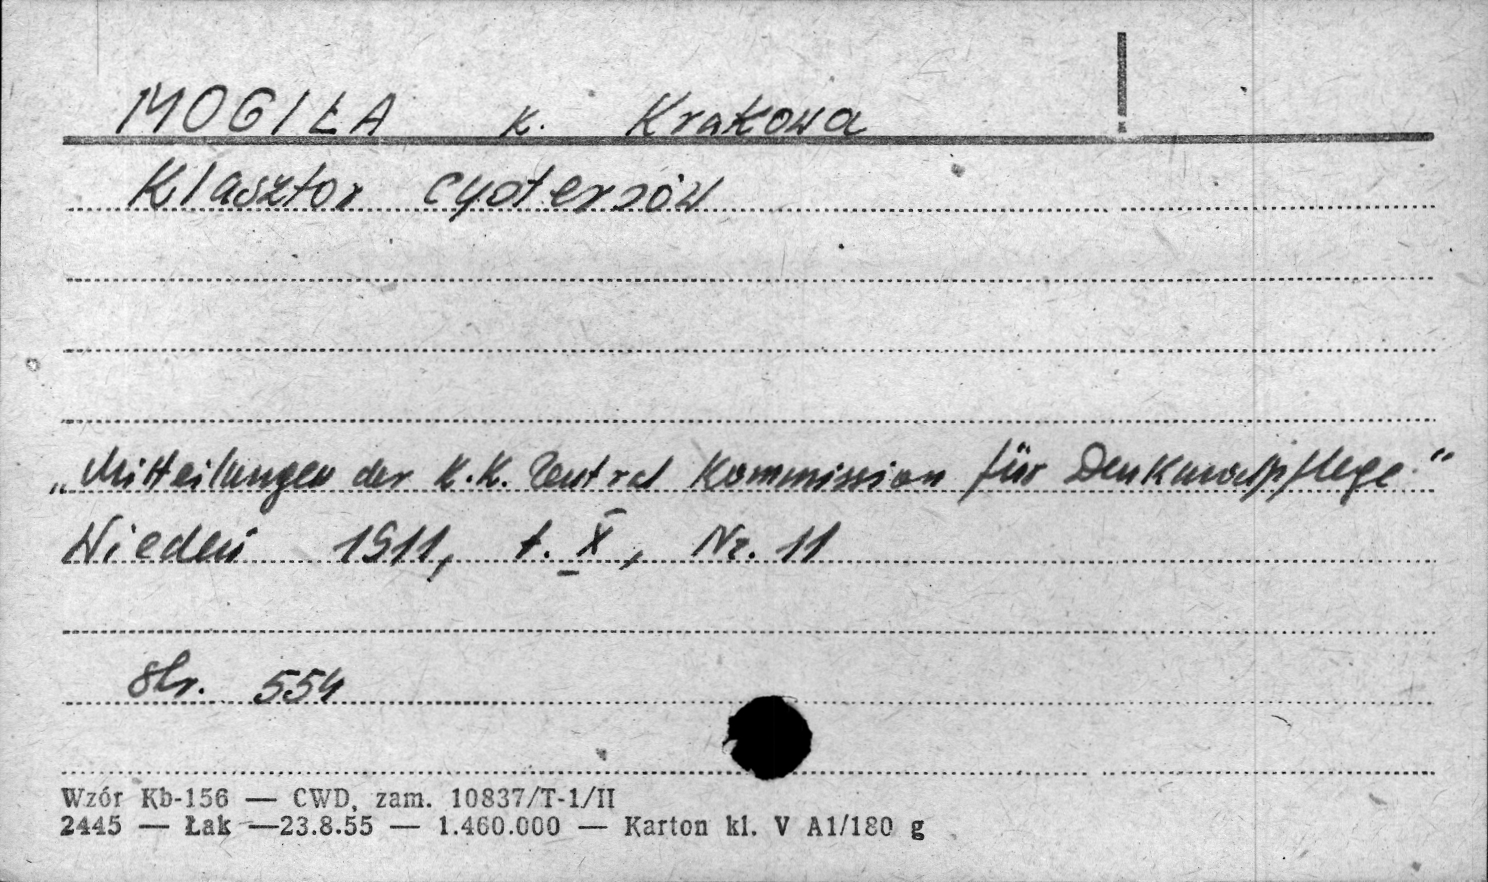 MOGIŁA k. Krakowa
Klasztor cystersów
„Mitteilungen der K.K. Central Kommission für Denkmalpflege."
Wiedeń 1911, t. X, Nr. 11
str. 554
Wzór Kb-156 — CWD, zam. 10837/T-1/II
2445 — Łak —23.8.55 — 1.460.000 — Karton kl. V A1/180 g